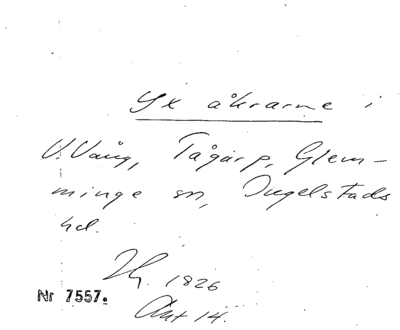 Yx åkrarne i
V. Vång, Tågarp, Glem-
minge sn, Ingelstads
hd.
Hg. 1826
Akt 14.
Nr 7557.